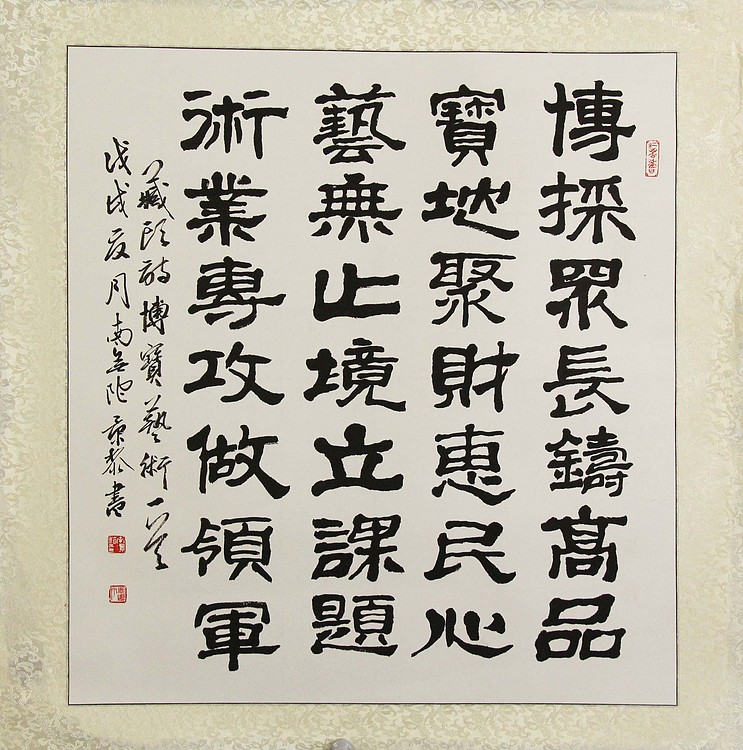 博採眾長鑄高品
寶地聚財惠民心
藝無止境立課題
術業專攻做領軍
藏頭詩博寶藝術一首
戊戌夏月南無陀景泰書